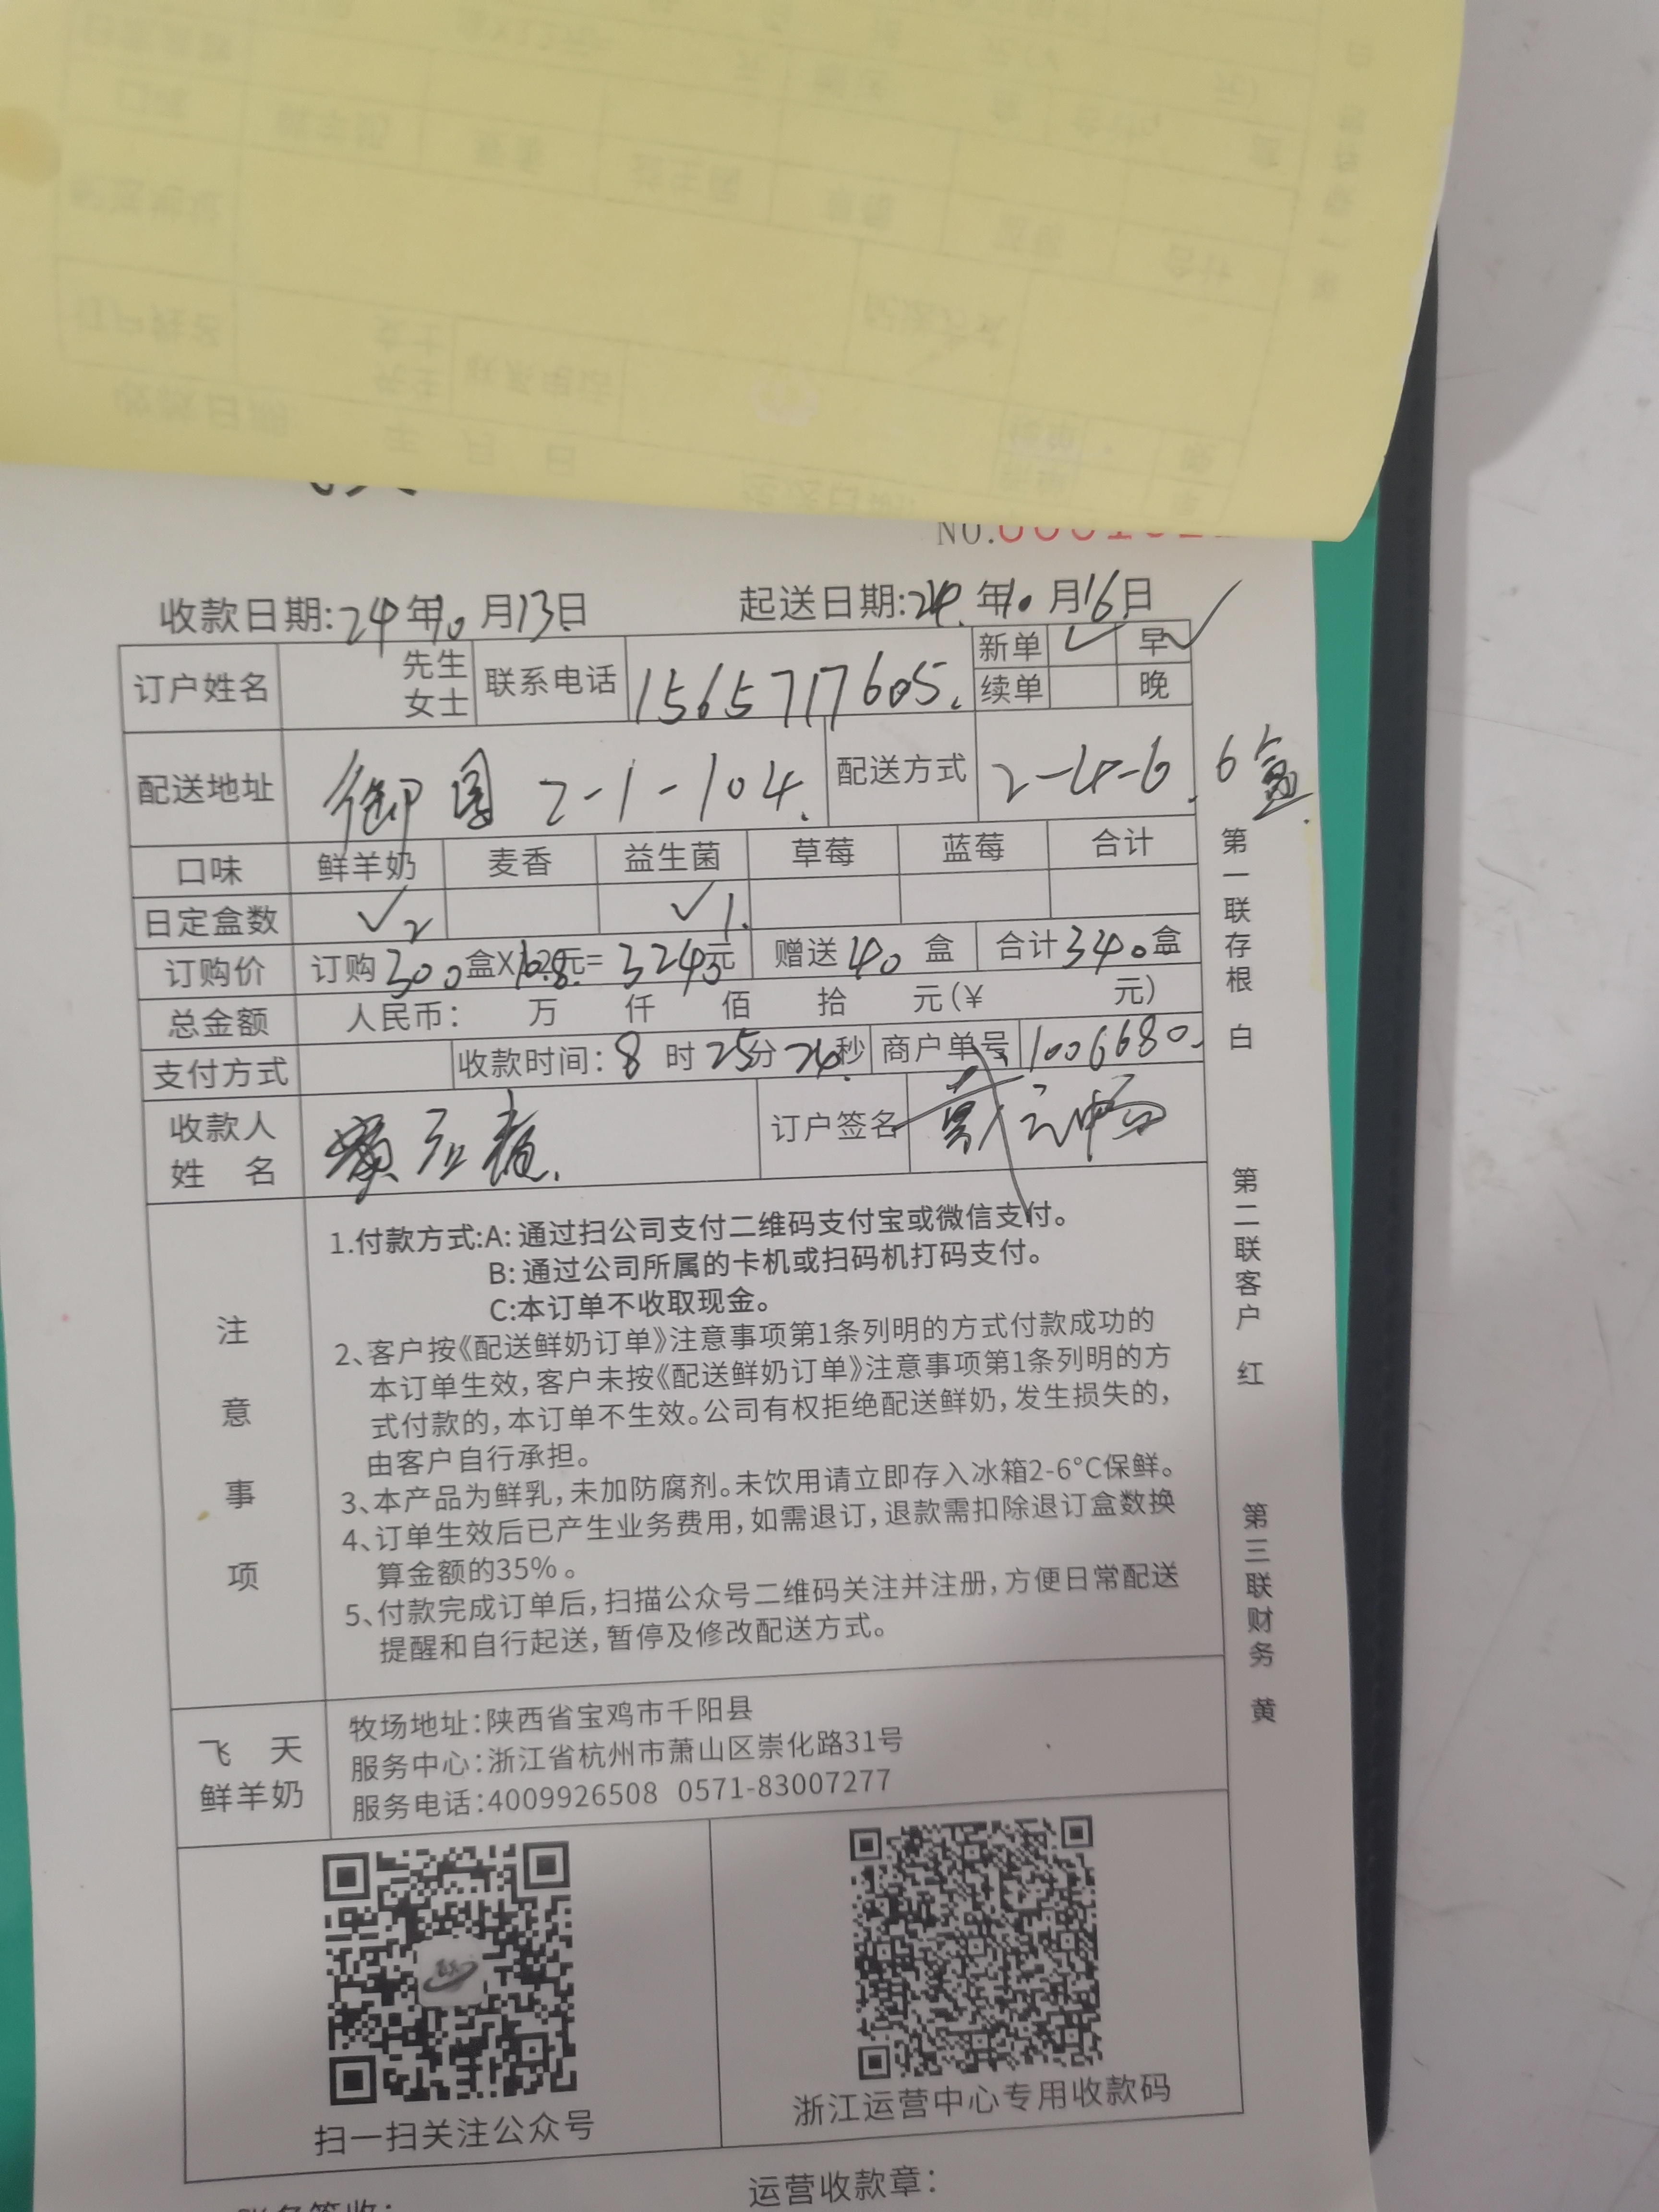 收款日期:24年10月13日 起送日期:24年10月16日
订户姓名 先生 女士 联系电话 15657177605. 新单 ✓ 早 ✓
续单 晚
配送地址 御园 2-1-104. 配送方式 2-4-6. 6盒
口味 鲜羊奶 麦香 益生菌 草莓 蓝莓 合计
日定盒数 ✓2 ✓1.
订购价 订购300盒X10.8元=3240元 赠送40盒 合计340盒
总金额 人民币: 万 仟 佰 拾 元(¥ 元)
支付方式 收款时间:8时25分 秒 商户单号 1006680.
收款人
姓 名
订户签名
注意事项
1.付款方式:A:通过扫公司支付二维码支付宝或微信支付。
B:通过公司所属的卡机或扫码机打码支付。
C:本订单不收取现金。
2、客户按《配送鲜奶订单》注意事项第1条列明的方式付款成功的
本订单生效,客户未按《配送鲜奶订单》注意事项第1条列明的方
式付款的,本订单不生效。公司有权拒绝配送鲜奶,发生损失的,
由客户自行承担。
3、本产品为鲜乳,未加防腐剂。未饮用请立即存入冰箱2-6°C保鲜。
4、订单生效后已产生业务费用,如需退订,退款需扣除退订盒数换
算金额的35%。
5、付款完成订单后,扫描公众号二维码关注并注册,方便日常配送
提醒和自行起送,暂停及修改配送方式。
飞 天
鲜羊奶
牧场地址:陕西省宝鸡市千阳县
服务中心:浙江省杭州市萧山区崇化路31号
服务电话:4009926508 0571-83007277
扫一扫关注公众号
浙江运营中心专用收款码
运营收款章:
第一联存根 白
第二联客户 红
第三联财务 黄